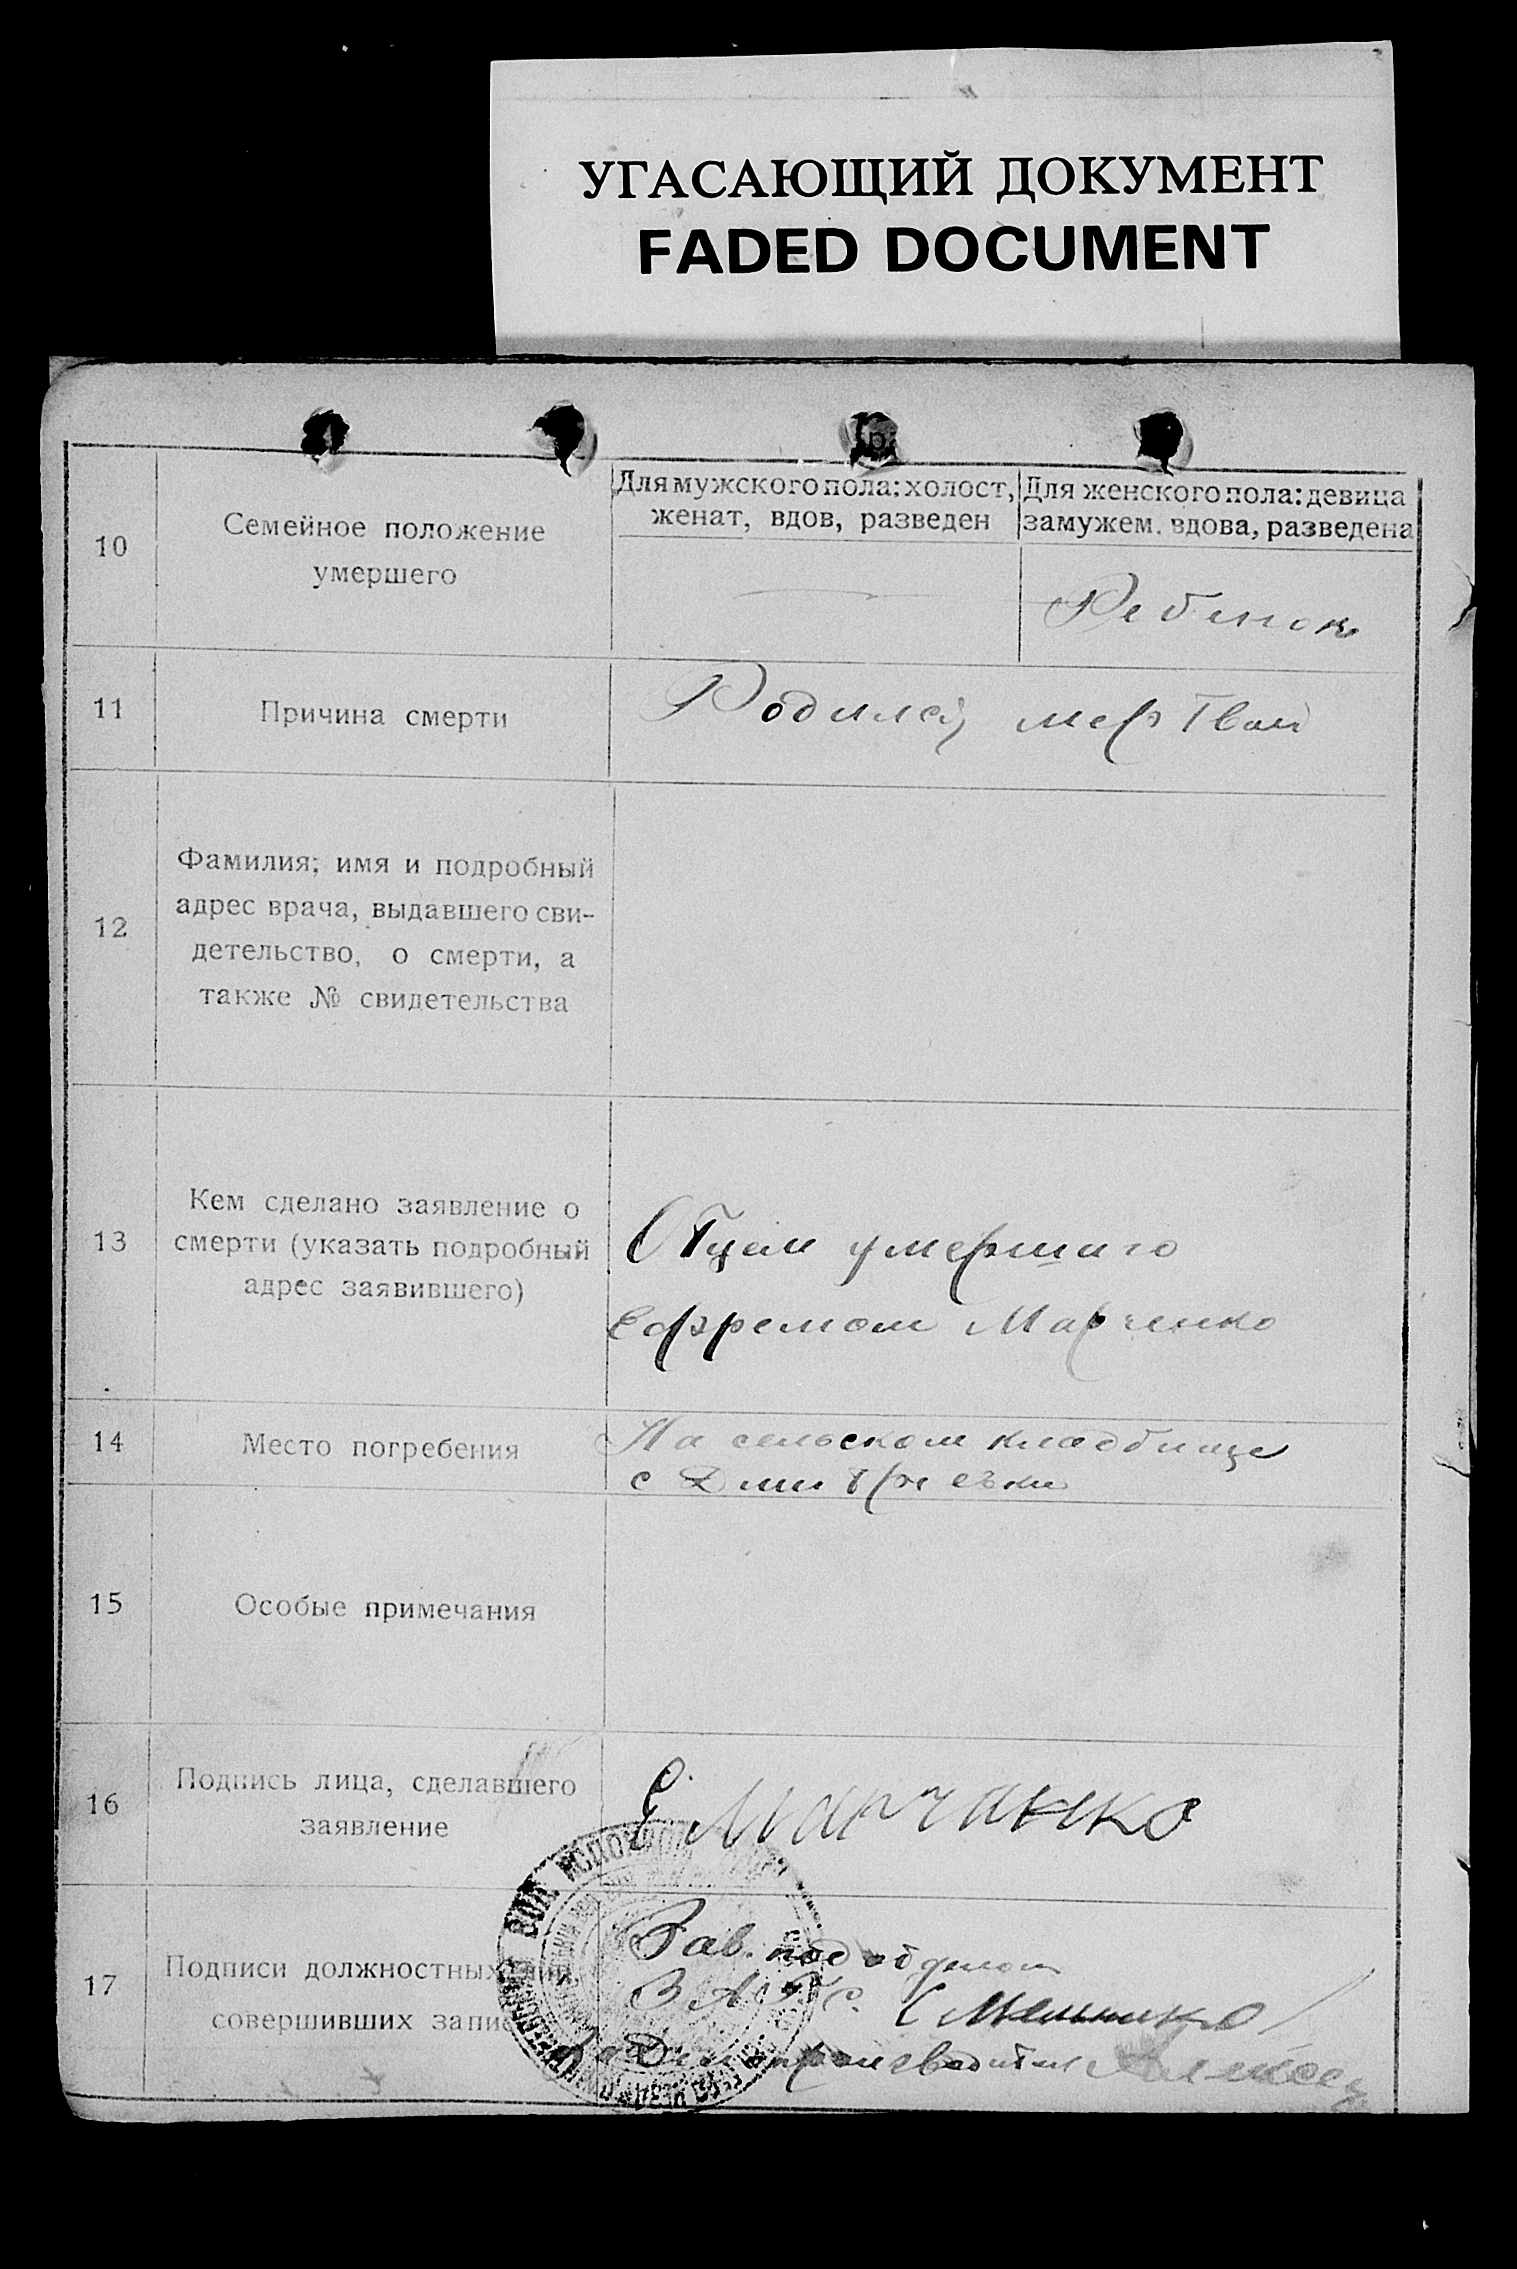 УГАСАЮЩИЙ ДОКУМЕНТ
FADED DOCUMENT
10
Семейное положение
умершего
Для мужского пола: холост,
женат, вдов, разведен
Для женского пола: девица
замужем. вдова, разведена
Ребенок
11
Причина смерти
Родился мертвый
12
Фамилия; имя и подробный
адрес врача, выдавшего сви-
детельство, о смерти, а
также № свидетельства
13
Кем сделано заявление о
смерти (указать подробный
адрес заявившего)
Отцем умершаго
Ефремом Марченко
14
Место погребения
На сельском кладбище
с
15
Особые примечания
16
Подпись лица, сделавшего
заявление
Е. Марченко
17
Подписи должностных
совершивших запис
Зав. подотделом
ЗАГС.
Делопроизводитель